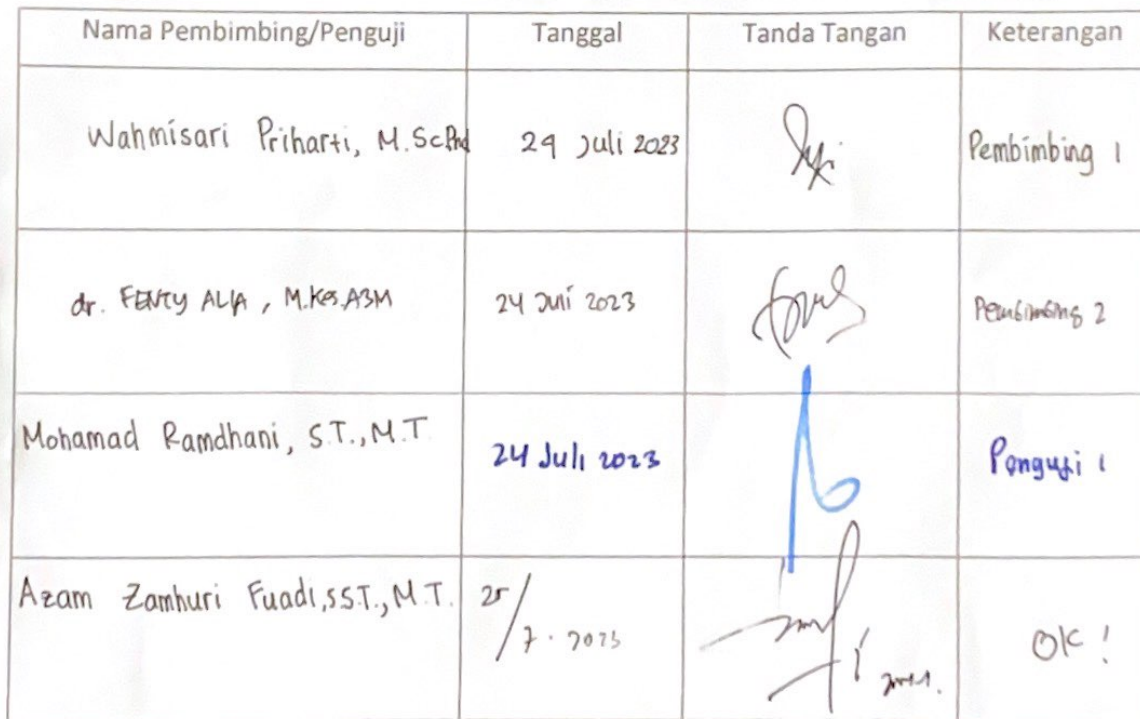 Nama Pembimbing/Penguji Tanggal Tanda Tangan Keterangan
Wahmisari Priharti, M.Sc.Phd 24 Juli 2023 Pembimbing 1
dr. FENTY ALIA, M.Kes.A3M 24 Juni 2023 Pembimbing 2
Mohamad Ramdhani, S.T., M.T 24 Juli 2023 Penguji 1
Azam Zamhuri Fuadi, S.S.T., M.T. 25/7.2023 OK!